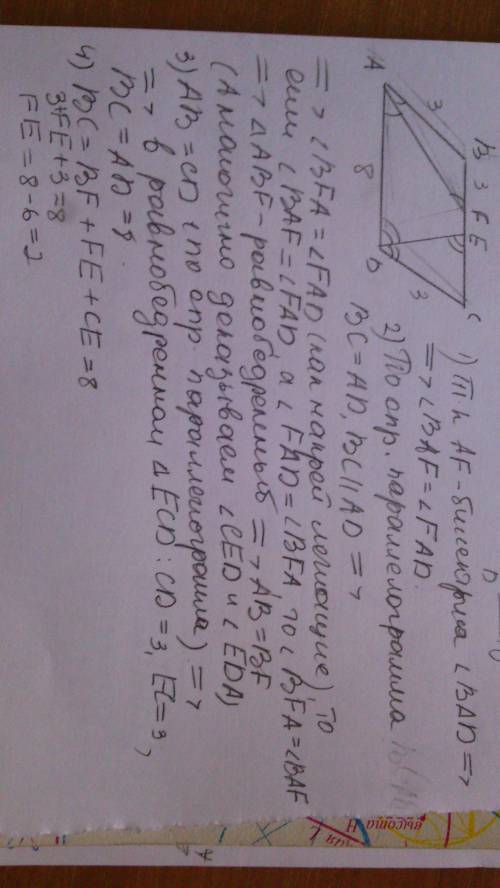 B 3 F E C
3
A 8 D
3
1) Т. к AF - биссектриса ∠BAD =>
=> ∠BAF = ∠FAD.
2) По опр. параллелограмма
BC = AD, BC || AD =>
=> ∠BFA = ∠FAD (как накрест лежащие), то
если ∠BAF = ∠FAD, а ∠FAD = ∠BFA, то ∠BFA = ∠BAF
=> △ABF - равнобедренный => AB = BF
(Аналогично доказываем ∠CED и ∠EDA)
3) AB = CD (по опр. параллелограмма) =>
=> в равнобедренном △ECD: CD = 3, EC = 3,
BC = AD = 8.
4) BC = BF + FE + CE = 8
3+FE+3=8
FE = 8-6=2
высота
H